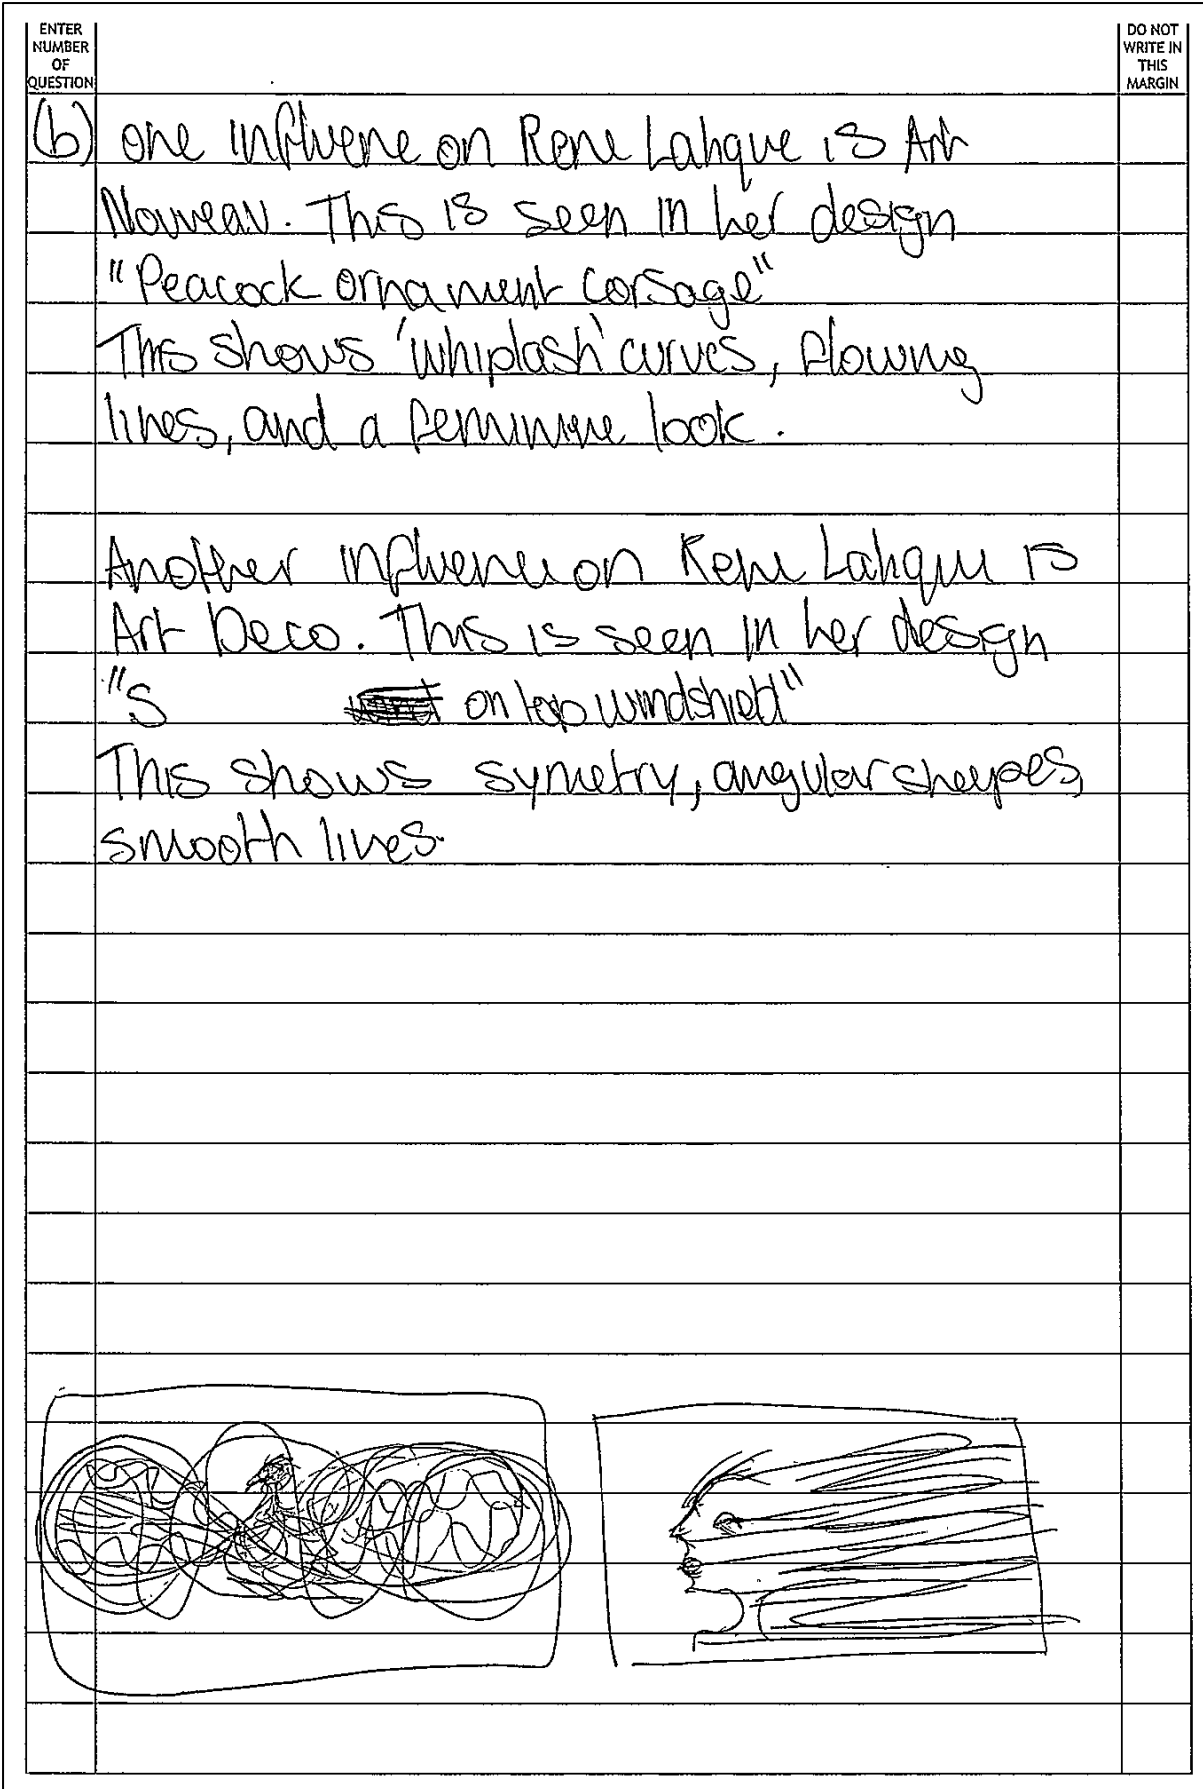 ENTER
NUMBER
OF
QUESTION
DO NOT
WRITE IN
THIS
MARGIN
(b) one influene on Rene Lalique is Art
Nouveau. This is seen in her design
"Peacock ornament corsage"
This shows 'whiplash' curves, flowing
lines, and a feminine look.
Another influene on Rene Lalique is
Art Deco. This is seen in her design
"S on top windshield"
This shows symetry, angular shapes,
smooth lines.